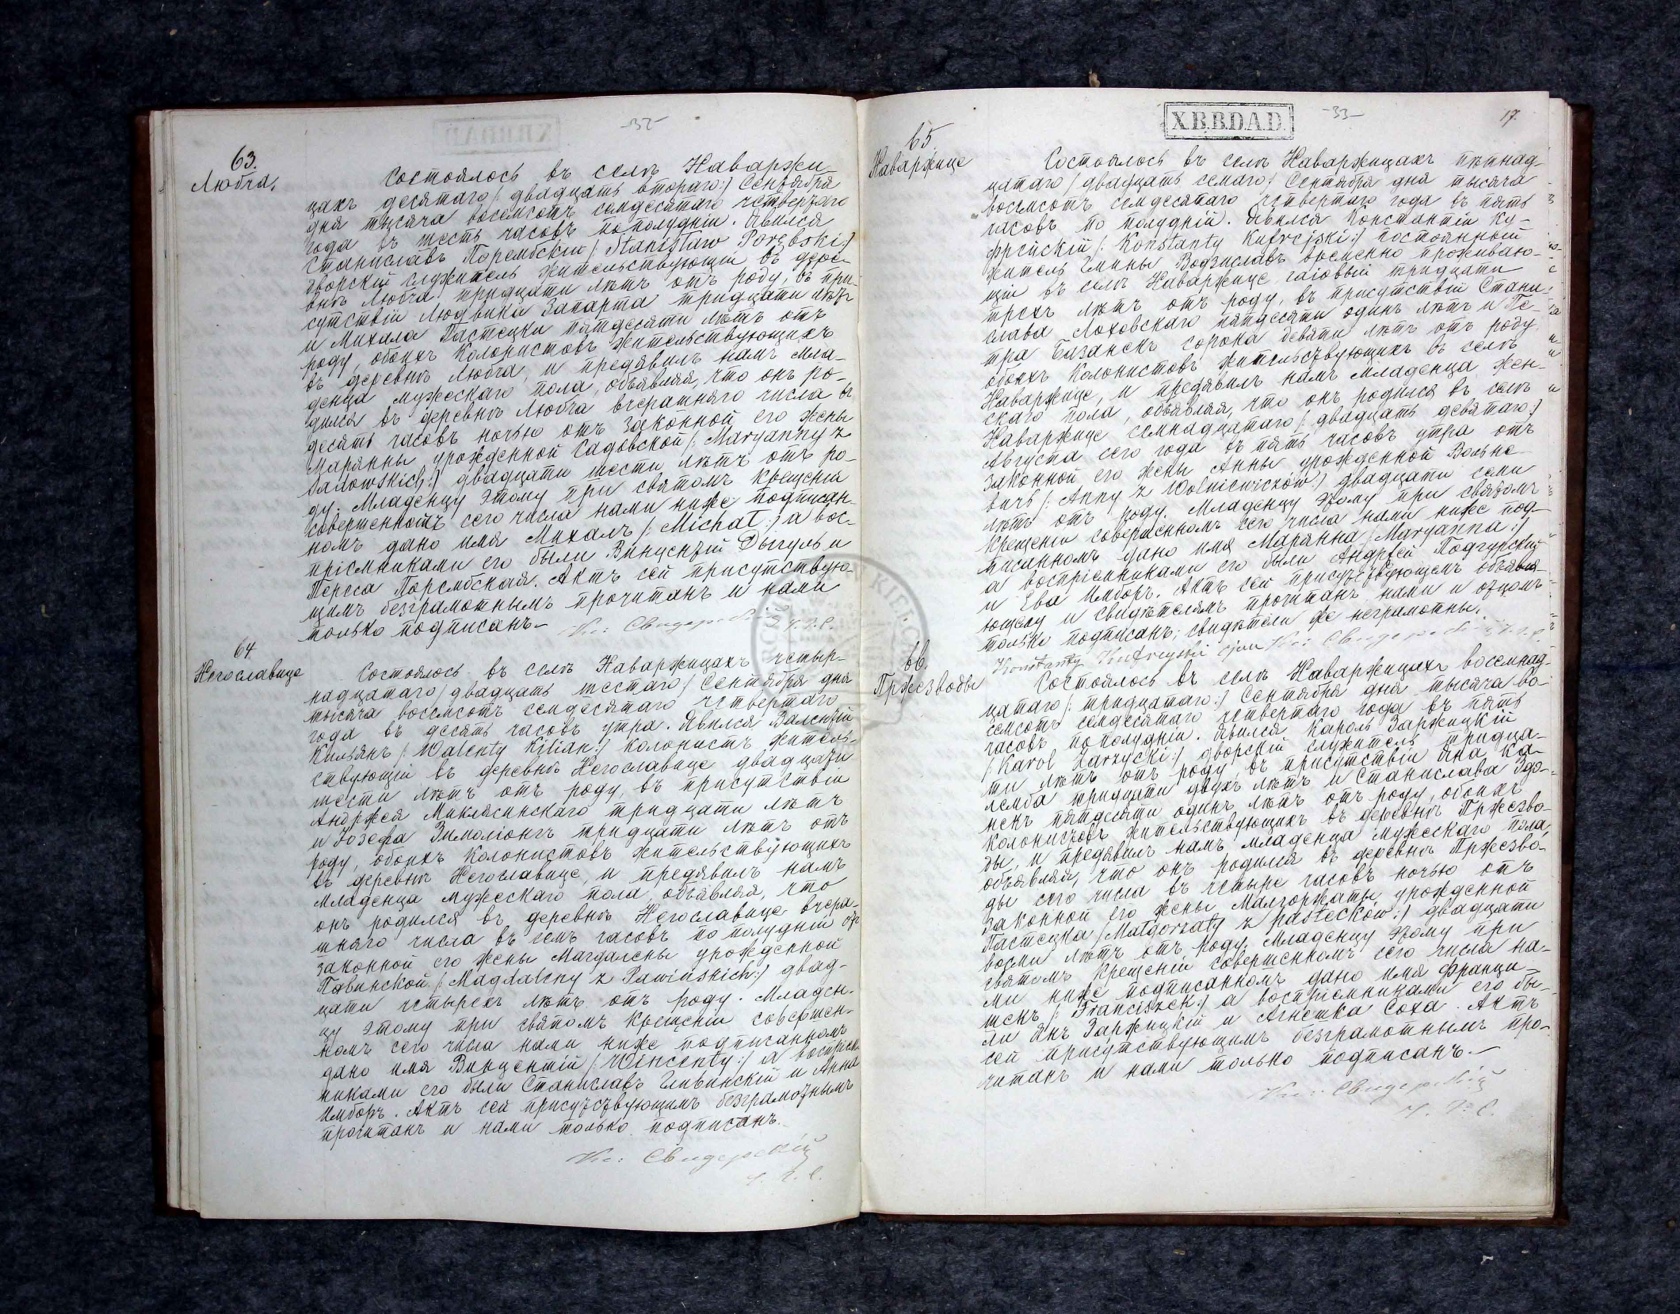 -32-
63.
Любча,
Состоялось въ селѣ Наваржи-
цахъ десятаго /двадцать втораго:/ Сентября
дня тысяча восемсотъ семдесятаго четвертаго
года въ шесть часовъ пополудни. Явился
Станиславъ Порембскій /Stanisław Porębski:/
дворскій служитель жительствующій въ дерев-
внѣ Любча тридцати лѣтъ отъ роду, въ при-
сутствіи Людвика Запарта тридцати лѣтъ
и Михала Пастецки пятдесяти лѣтъ отъ
роду, обоихъ колонистовъ жительствующихъ
въ деревнѣ Любча, и предявилъ намъ мла-
денца мужескаго пола, объявляя, что онъ ро-
дился въ деревнѣ Любча вчерашняго числа въ
десять часовъ ночью отъ законной его жены
Маріянны урожденной Садовской /Maryanny z
Sadowskich:/ двадцати шести лѣтъ отъ ро-
ду. Младенцу этому при святомъ крещеніи
совершенномъ сего числа нами ниже подписан-
номъ дано имя Михалъ /Michał:/ а вос-
пріемниками его были Винценцій Дыгуль и
Тереса Порембская. Актъ сей присутствую-
щимъ безграмотнымъ прочитанъ и нами
только подписанъ.-
Кс: Свидерскій
64
Негославице
Состоялось въ селѣ Наваржицахъ четыр-
надцатаго /двадцать шестаго:/ Сентября дня
тысяча восемсотъ семдесятаго четвертаго
года въ десять часовъ утра. Явился Валентій
Килянъ /Walenty Kilian:/ колонистъ житель-
ствующій въ деревнѣ Негославице двадцати
шести лѣтъ отъ роду, въ присутствіи
Андржея Миклясинскаго тридцати лѣтъ
и Іозефа Зимолонгъ тридцати лѣтъ отъ
роду, обоихъ колонистовъ жительствующихъ
въ деревнѣ Негославице, и предявилъ намъ
младенца мужескаго пола объявляя, что
онъ родился въ деревнѣ Негославице вчера-
шняго числа въ семь часовъ по полудни отъ
законной его жены Магдалены урожденной
Павинской /Magdaleny z Pawińskich:/ двад-
цати четырехъ лѣтъ отъ роду. Младен-
цу этому при святомъ крещеніи совершен-
номъ сего числа нами ниже подписанномъ
дано имя Винцентій /Wincenty:/ а воспріем-
никами его были Станиславъ Сливинскій и Анна
Имборъ. Актъ сей присутствующимъ безграмотнымъ
прочитанъ и нами только подписанъ.
Кс: Свидерскій
-33-
X.B.B.D.A.D.
17
65.
Наваржице
Состоялось въ селѣ Наваржицахъ пятнад-
цатаго /двадцать семаго:/ Сентября дня тысяча
восемсотъ семдесятаго четвертаго года въ пять
часовъ по полудни. Явился Константій Ку-
фрейскій /Konstanty Kufrejski:/ постоянный
житель Гмины Водзиславъ временно проживаю-
щій въ селѣ Наваржице гаіовый тридцати
трехъ лѣтъ отъ роду, въ присутствіи Стани-
слава Лоховскаго пятдесяти одинъ лѣтъ и Пе-
тра Бизанскъ сорока девяти лѣтъ отъ роду
обоихъ колонистовъ жительствующихъ въ селѣ
Наваржице, и предявилъ намъ младенца жен-
скаго пола, объявляя, что онъ родился въ селѣ
Наваржице семнадцатаго /двадцать девятаго:/
Августа сего года въ пять часовъ утра отъ
законной его жены Анны урожденной Вольне-
вичъ /Anny z Wolniewiczów:/ двадцати семи
лѣтъ отъ роду. Младенцу этому при святомъ
крещеніи совершенномъ сего числа нами ниже под-
писанномъ дано имя Маріянна /Maryanna:/
а воспріемниками его были Андржей Подгурскій
и Ева Имборъ. Актъ сей присутствующемъ объявля-
ющему и свидѣтелямъ прочитанъ нами и отцомъ
только подписанъ; свидѣтели же неграмотны.
Konstanty Kufreyski Кс: Свидерскій
66.
Пржезводы
Состоялось въ селѣ Наваржицахъ восемнад-
цатаго /тридцатаго:/ Сентября дня тысяча во-
семсотъ семдесятаго четвертаго года въ пять
часовъ пополудни. Явился Кароль Заржицкій
/Karol Zarzycki:/ дворскій служитель тридца-
ти лѣтъ отъ роду, въ присутствіи Яна Ка-
лемба тридцати двухъ лѣтъ и Станислава Здо-
некъ пятдесяти одинъ лѣтъ отъ роду, обоихъ
колонистовъ жительствующихъ въ деревнѣ Пржезво-
ды, и предявилъ намъ младенца мужескаго пола,
объявляя, что онъ родился въ деревнѣ Пржезво-
ды сего числа въ четыре часовъ ночью отъ
законной его жены Малгоржаты урожденной
Пастецка /Małgorzaty z Pasteckow:/ двадцати
восми лѣтъ отъ роду. Младенцу этому при
святомъ крещеніи совершенномъ сего числа на-
ми ниже подписанномъ дано имя Франци-
шекъ /Franciszek:/ а воспріемниками его бы-
ли Янъ Заржицкій и Агнешка Соха. Актъ
сей присутствующимъ безграмотнымъ про-
читанъ и нами только подписанъ.-
Кс: Свидерскій